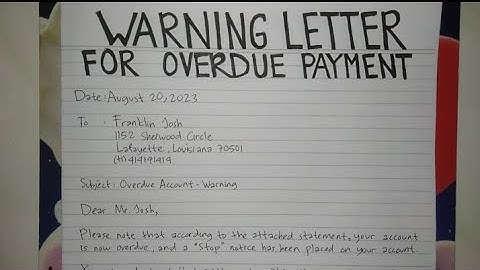 WARNING LETTER
FOR OVERDUE PAYMENT
Date: August 20, 2023
To : Franklin Josh
1152 Sherwood Circle
Lafayette, Louisiana 70501
(+1) 414191419
Subject: Overdue Account - Warning
Dear Mr. Josh,
Please note that according to the attached statement, your account
is now overdue, and a "Stop" notice has been placed on your account.